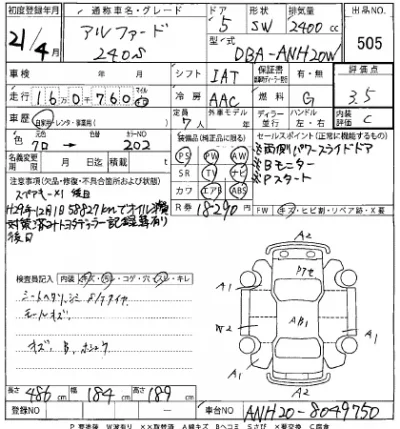 初度登録年月 通称車名・グレード ドア 形状 排気量 出品NO
21/4月 アルファード 240S 5 SW 2400cc 505
型式 DBA-ANH20W
車検 年 月 シフト IAT 保証書 有・無 評価点
走行 16万0千760 マイル 冷房 AAC 燃料 G 3.5
車歴 自家用・レンタ・事業用( ) 定員 7人 外車モデル 年 ディーラー 並行 ハンドル 左・右 内装評価 C
色 元色 クロ → 色 カラーNO 202 装備品(純正品に限る) セールスポイント(正常に機能する)
PS PW AW ※両側パワースライドドア
名義変更期限 月 日迄 積載 t SR TV ナビ ※Bモニター
注意事項(欠品・修復・不具合箇所など)及び状態 カワ エアB ABS ※Pスタート
スペアキー×1 後日 R券 18290円 FW キズ・ヒビ割・リペア跡・X要
H29年12月1日58827kmでオイル漏
対策済みトヨタディーラー記録簿有り
後日
検査員記入 内装 キズ・汚れ・コゲ・穴・スレ・キレ
シートヘタリ、シミ
モールキズ、
キズ、B、
A2
A1 A1
W2 AB1
A1 A1
A2
長さ 486cm 幅 184cm 高さ 189cm
登録NO 車台NO ANH20-8049750
P 要塗装 W波有り ××取替済 A線キズ Bヘコミ Sさび ×要交換 C腐食